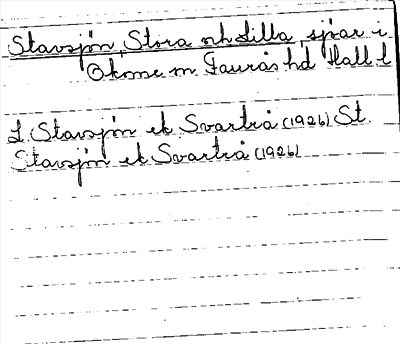 Stavsjön, Stora och Lilla, sjöar i
Okome sn Faurås hd Hall l
L. Stavsjön ek Svartrå (1926) St.
Stavsjön ek Svartrå (1926)